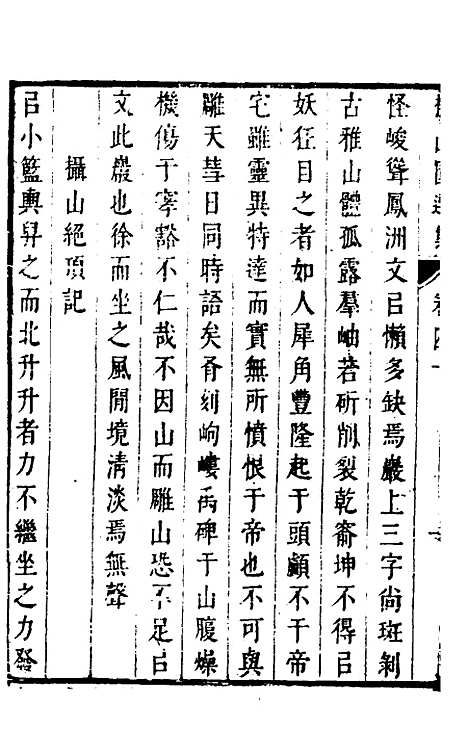 卷四十
怪峻聳鳳洲文㠯懶多缺焉巖上三字尙斑剝
古雅山體孤露羣岫若斫削裂乾龠坤不得㠯
妖狂目之者如人犀角豐隆起于頭顱不干帝
宅雖靈異特達而實無所憤恨于帝也不可與
雕天彗日同時語矣胥刻岣嶁禹碑于山腹燥
機傷于寥豁不仁哉不因山而雕山恐不足㠯
文此巖也徐而坐之風閒境清淡焉無聲
攝山絕頂記
㠯小籃輿舁之而北升升者力不繼坐之力發